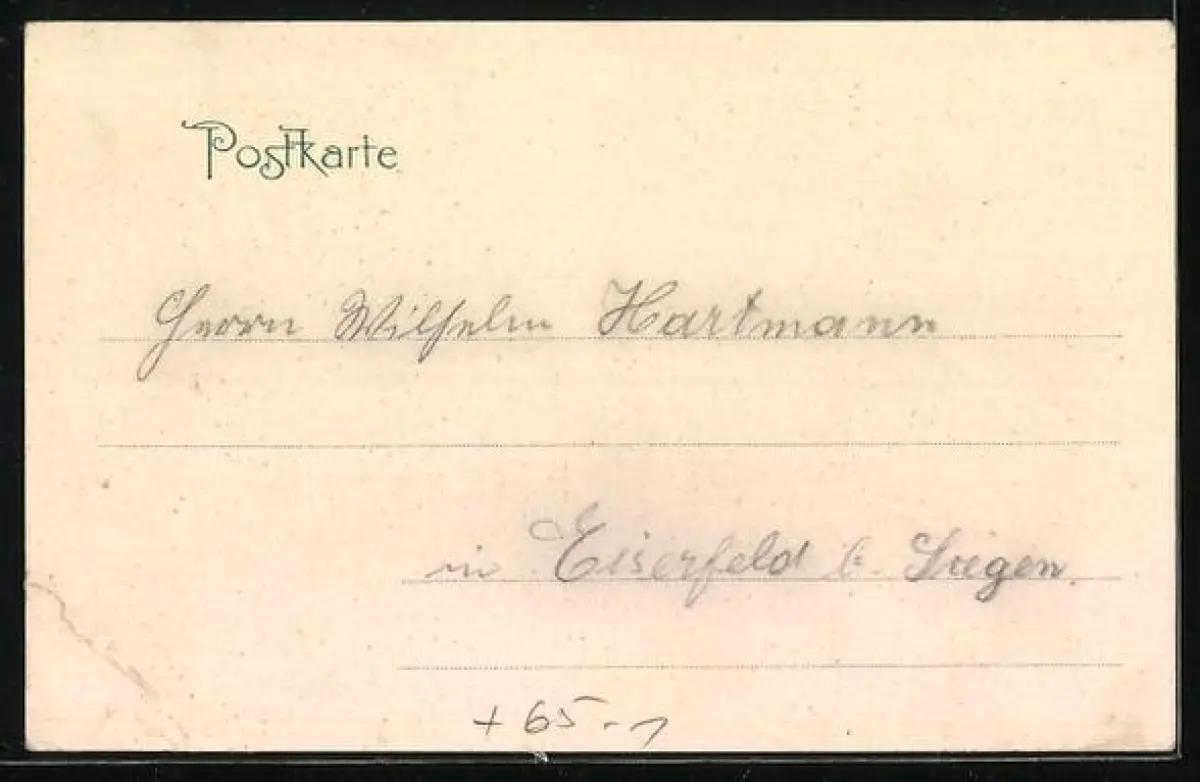 Postkarte
Herrn Wilhelm Hartmann
in Eiserfeld b. Siegen.
+ 65.-